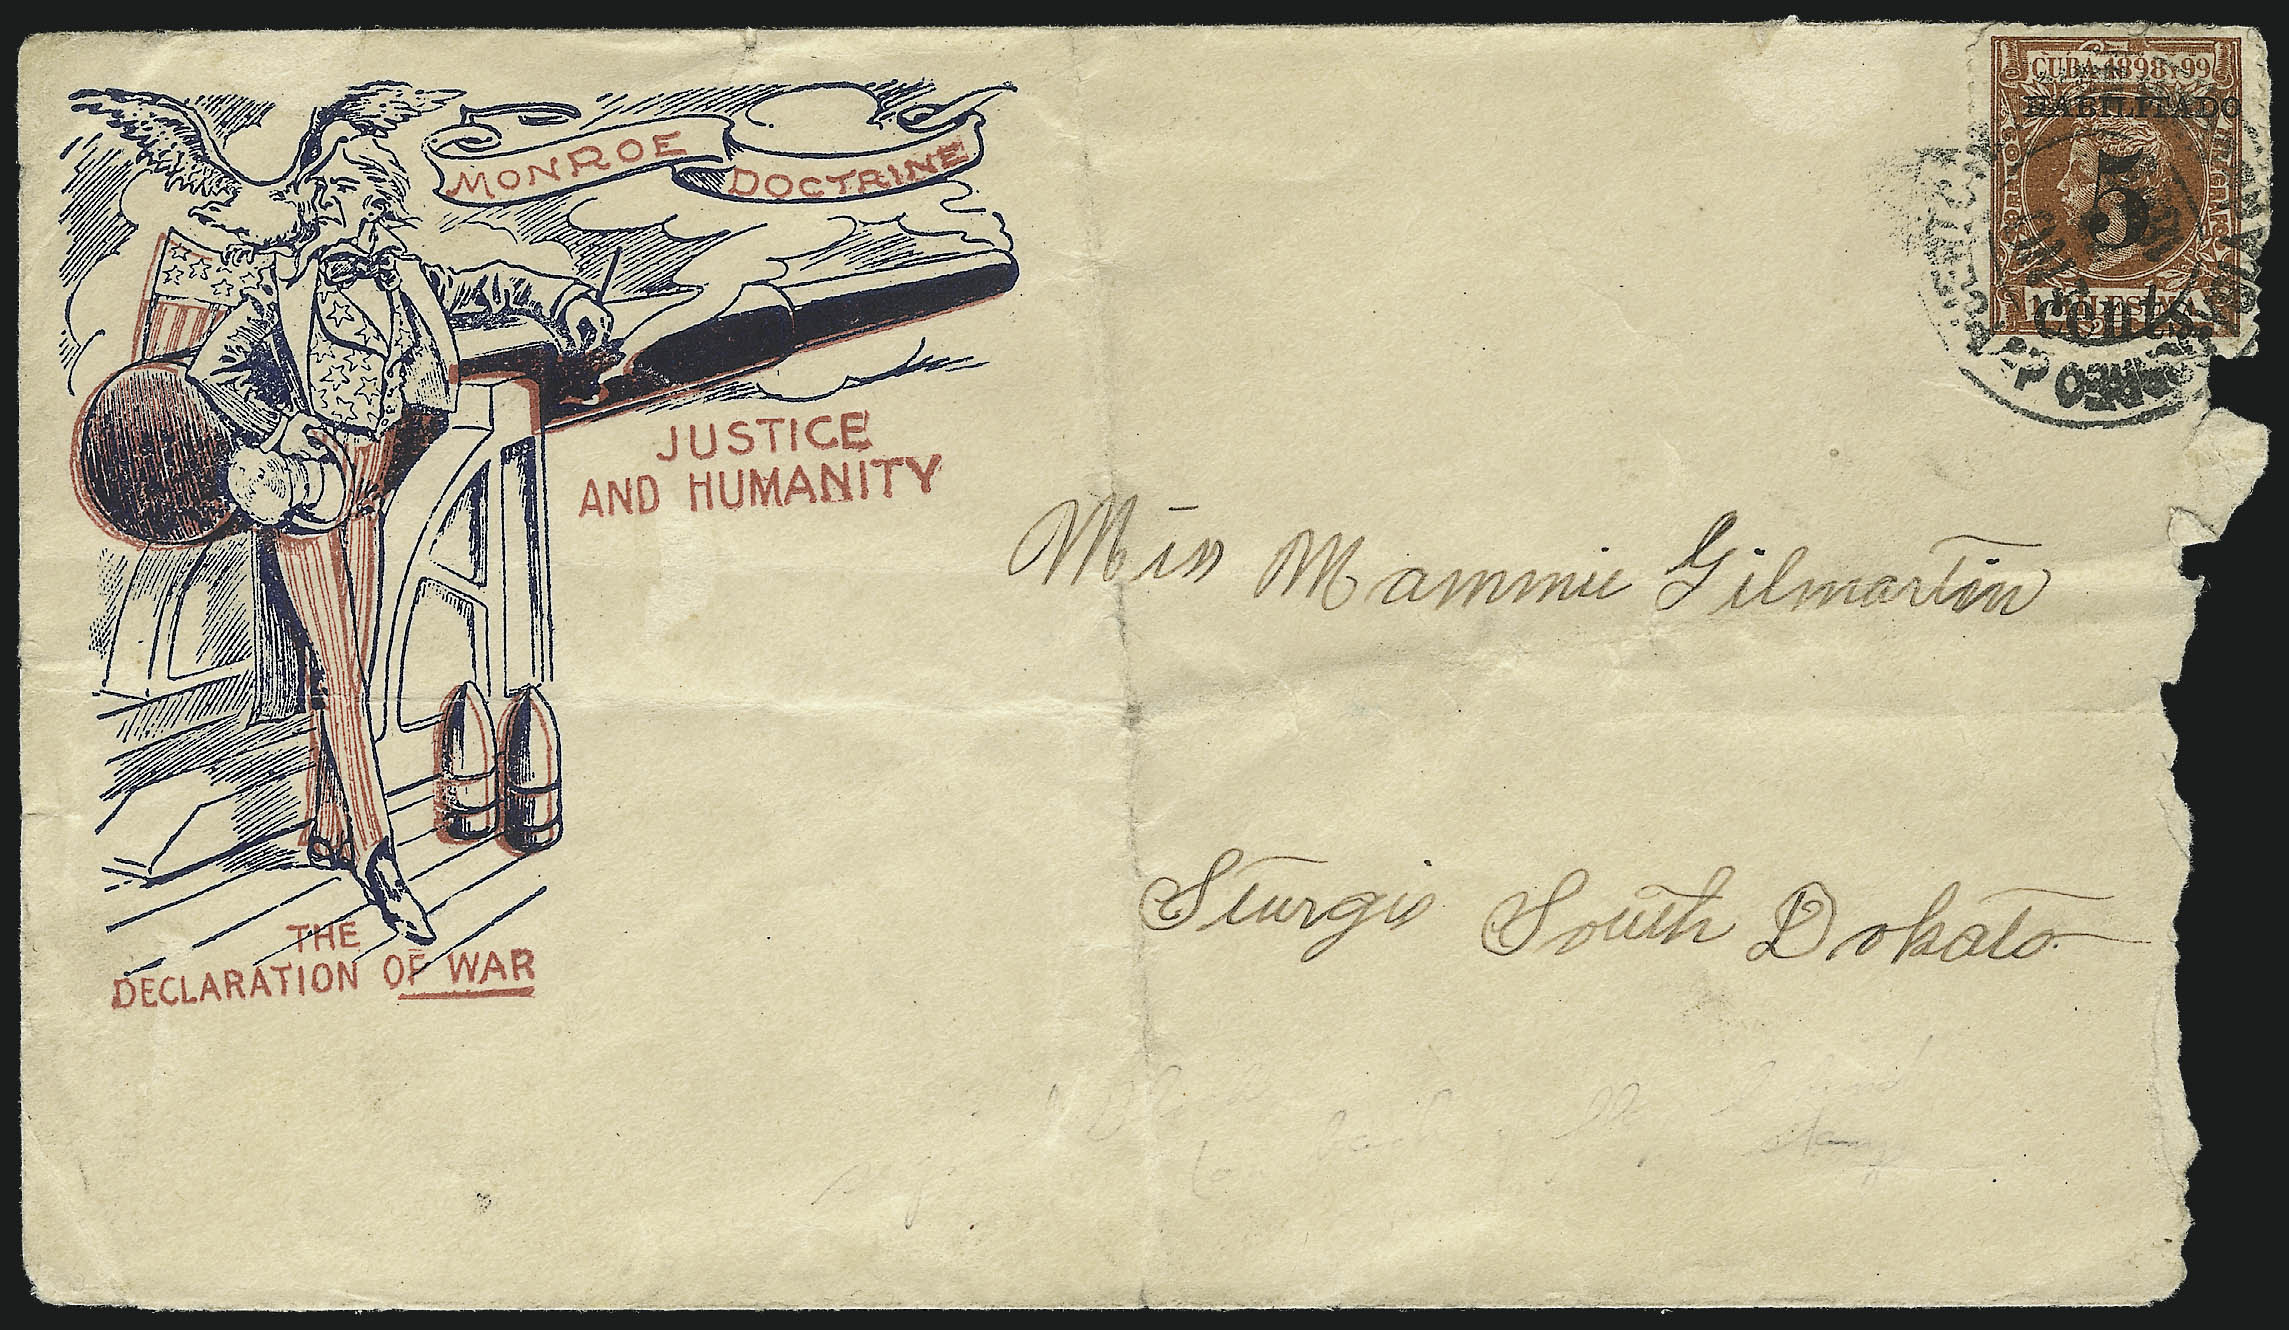 MONROE DOCTRINE
JUSTICE
AND HUMANITY
THE
DECLARATION OF WAR
CUBA 1898 Y 99
HABILITADO
5
cents.
CORREO
Miss Mammie Gilmartin
Sturgis South Dakota
stamp